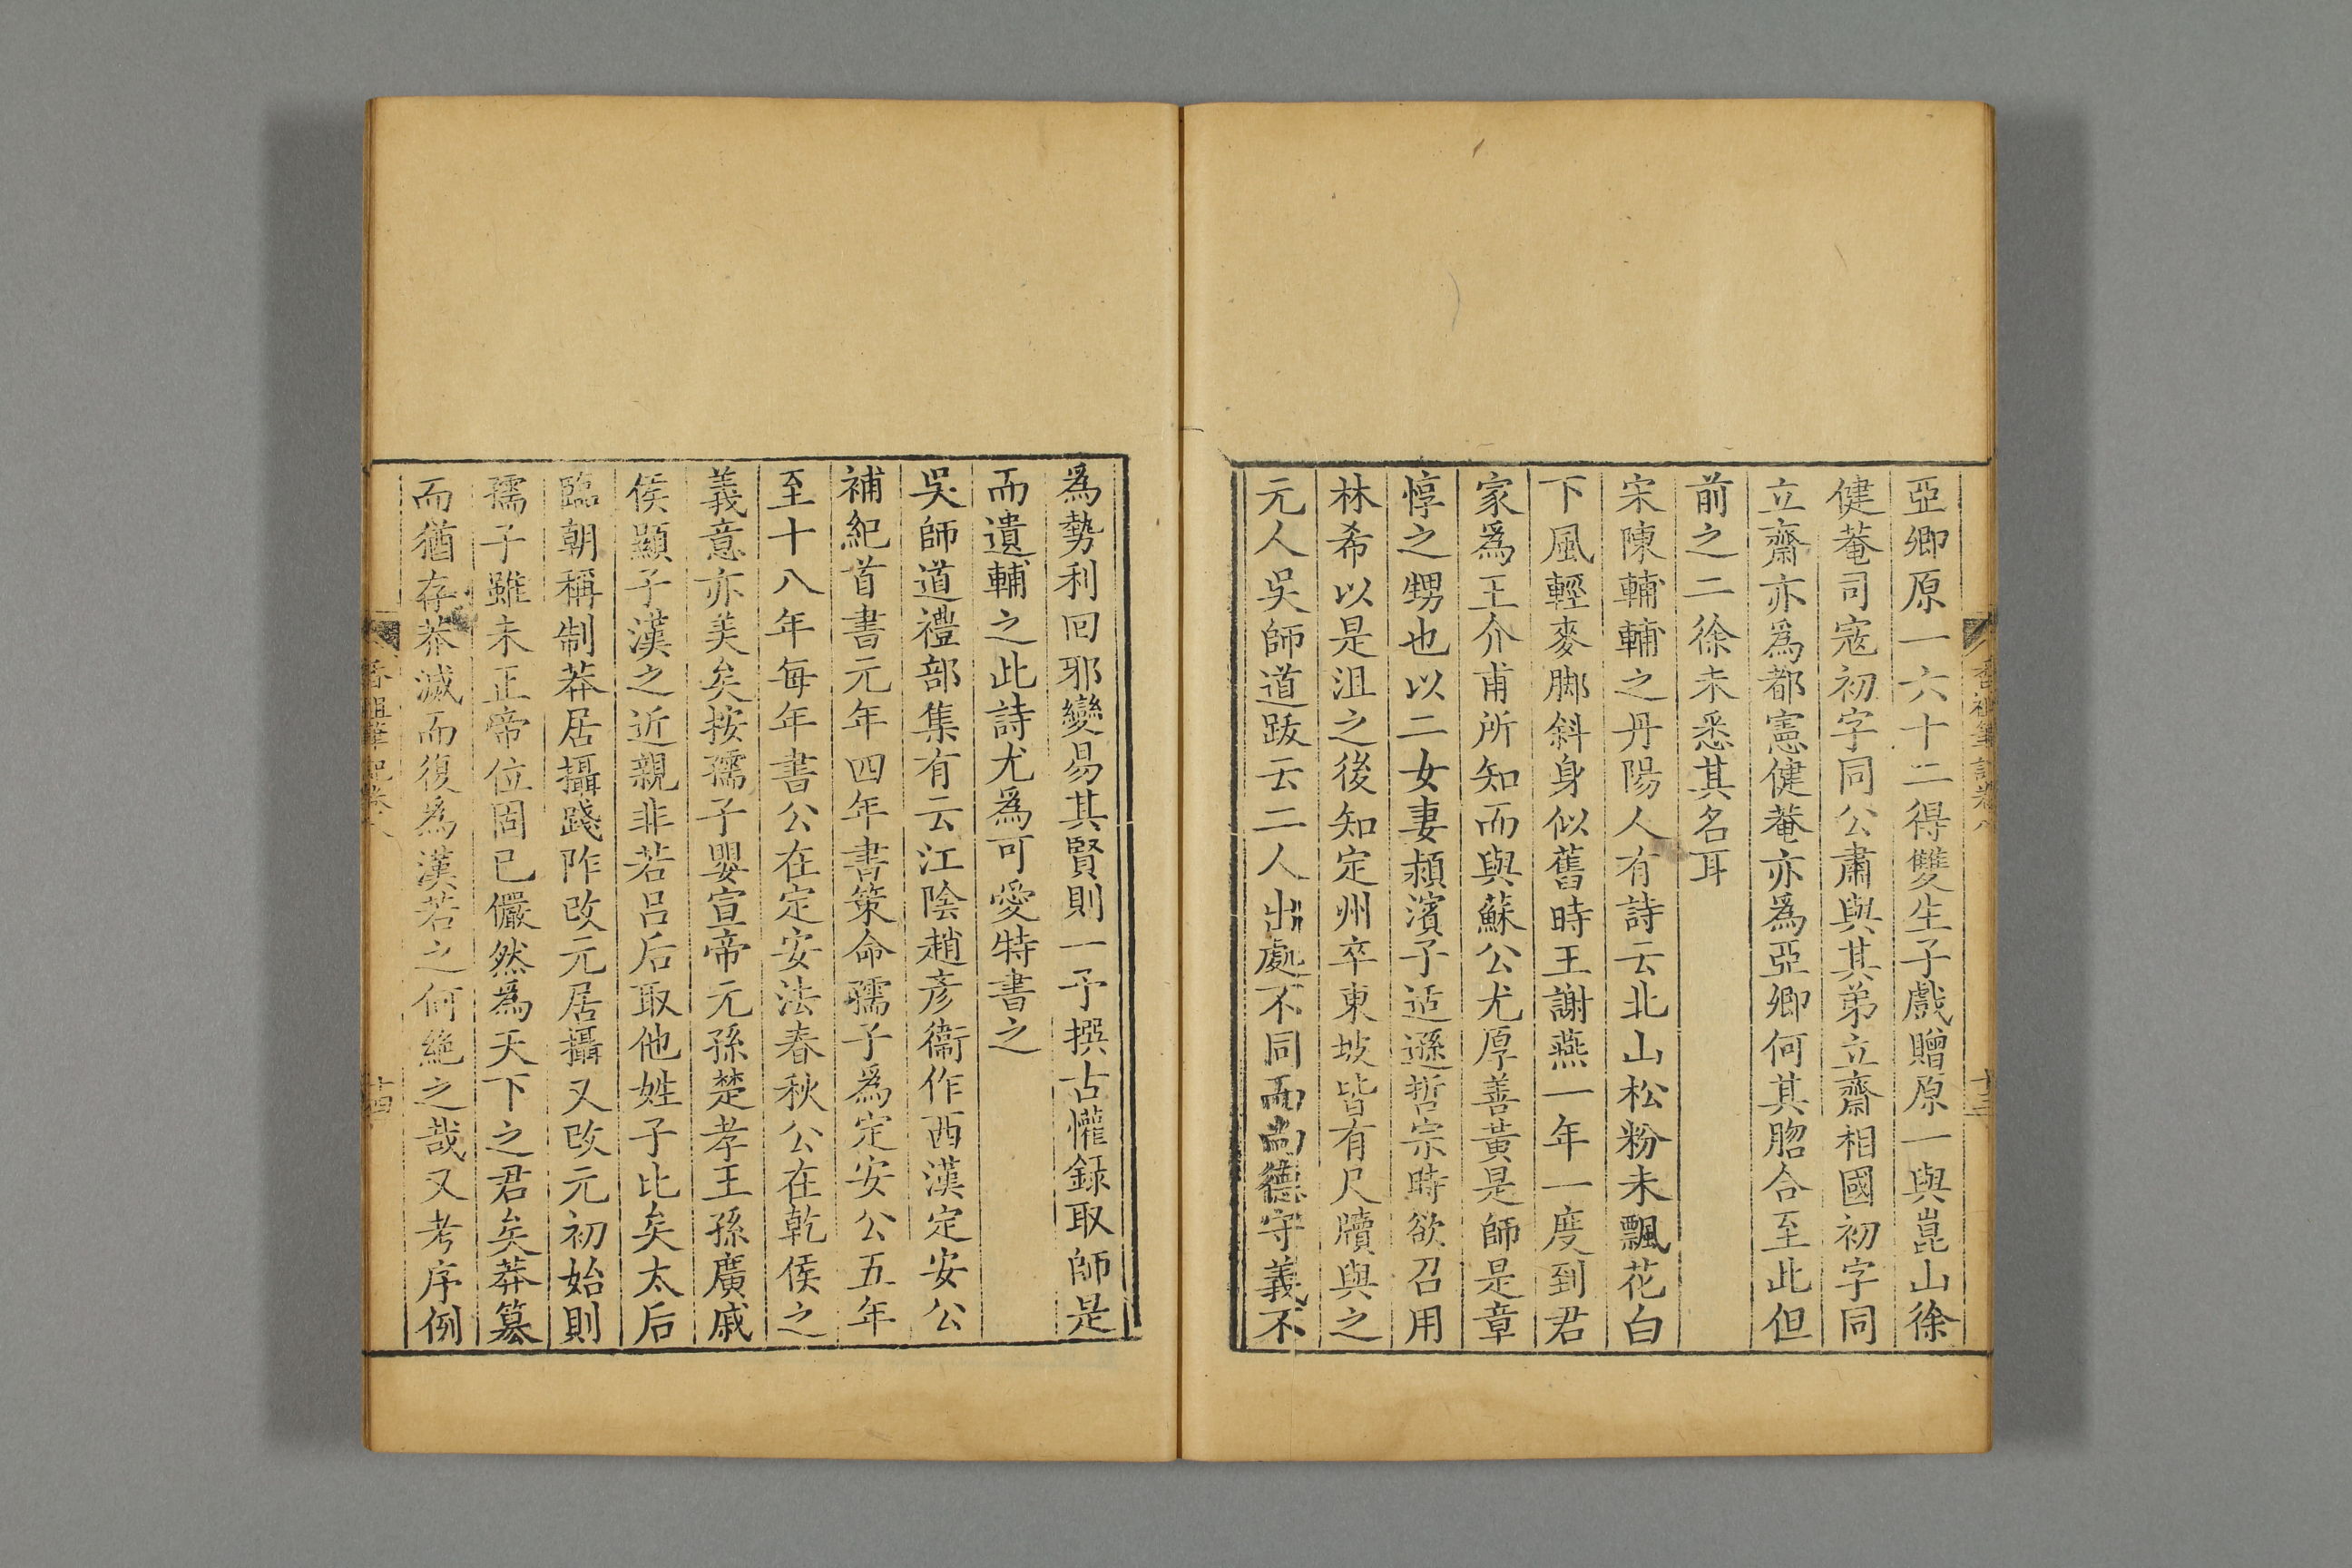 亞卿原一六十二得雙生子戲贈原一與崑山徐
健菴司寇初字同公肅與其弟立齋相國初字同
立齋亦爲都憲健菴亦爲亞卿何其脗合至此但
前之二徐未悉其名耳
宋陳輔輔之丹陽人有詩云北山松粉未飄花白
下風輕麥脚斜身似舊時王謝燕一年一度到君
家爲王介甫所知而與蘇公尤厚善黃是師是章
惇之甥也以二女妻潁濱子适遜哲宗時欲召用
林希以是沮之後知定州卒東坡皆有尺牘與之
元人吳師道跋云二人出處不同而尚德守義不
爲勢利回邪變易其賢則一予撰古懽録取師是
而遺輔之此詩尤爲可愛特書之
吳師道禮部集有云江陰趙彥衞作西漢定安公
補紀首書元年四年書策命孺子爲定安公五年
至十八年每年書公在定安法春秋公在乾侯之
義意亦美矣按孺子嬰宣帝元孫楚孝王孫廣戚
侯顯子漢之近親非若呂后取他姓子比矣太后
臨朝稱制莽居攝踐阼改元居攝又改元初始則
孺子雖未正帝位固已儼然爲天下之君矣莽篡
而猶存莽滅而復爲漢若之何絶之哉又考序例
香祖筆記卷八
十三
香祖筆記卷八
十四